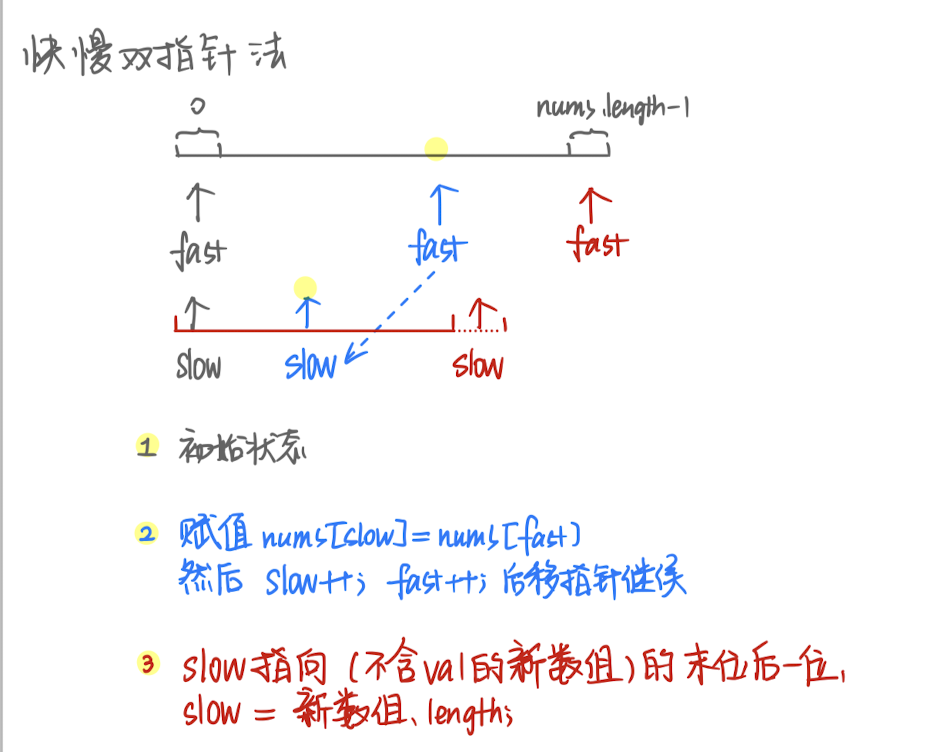 快慢双指针法
0 nums.length-1
fast fast fast
slow slow slow
1 初始状态
2 赋值 nums[slow]=nums[fast]
然后 slow++; fast++; 后移指针继续
3 slow指向(不含val的新数组)的末位后一位,
slow = 新数组.length;